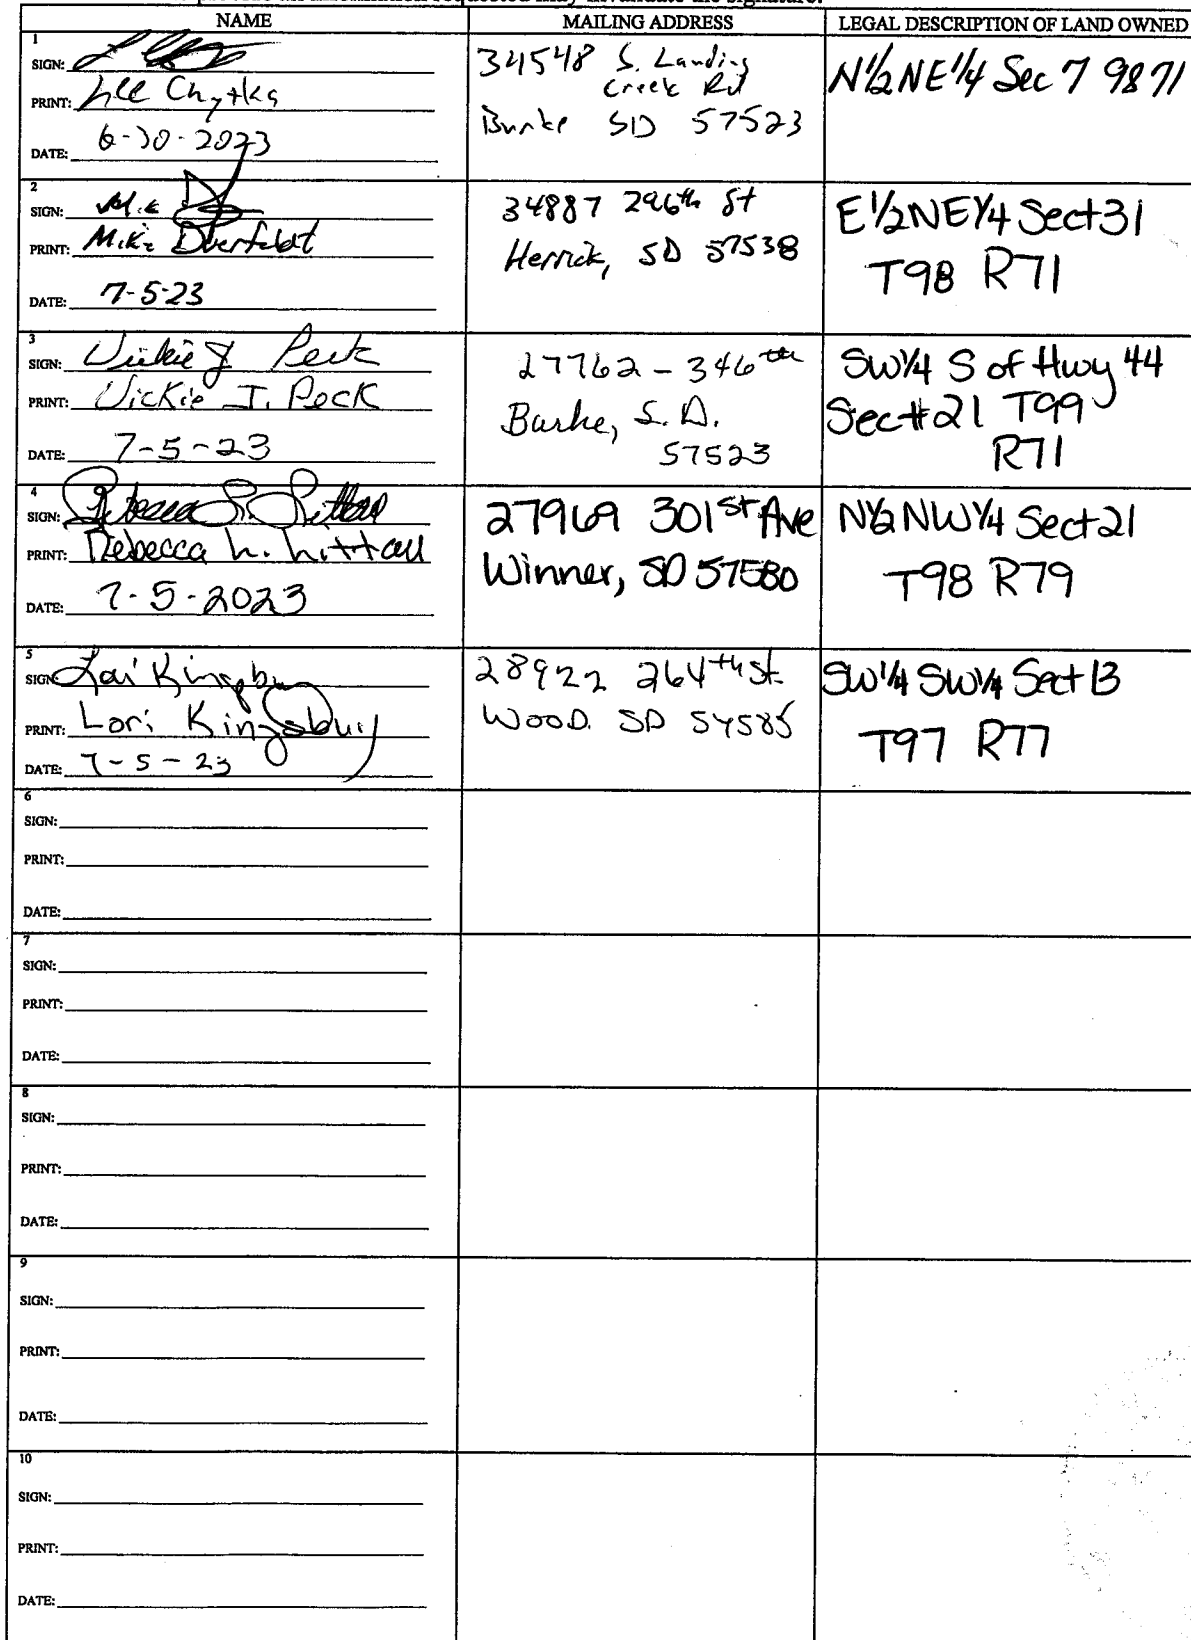 provide all information requested may invalidate the signature.
NAME MAILING ADDRESS LEGAL DESCRIPTION OF LAND OWNED
1
SIGN:
PRINT: Lee Chytka
DATE: 6-30-2023
34548 S. Landing
Creek Rd
Burke SD 57523
N1/2 NE1/4 Sec 7 98 71
2
SIGN: Mike
PRINT: Mike Oberfeldt
DATE: 7-5-23
34887 296th St
Herrick, SD 57538
E1/2NE1/4 Sect 31
T98 R71
3
SIGN: Vickie J Peck
PRINT: Vickie J. Peck
DATE: 7-5-23
27762 - 346th
Burke, S.D.
57523
SW1/4 S of Hwy 44
Sect #21 T99
R71
4
SIGN: Rebecca L. Littau
PRINT: Rebecca L. Littau
DATE: 7-5-2023
27969 301st Ave
Winner, SD 57580
N1/2 NW1/4 Sect 21
T98 R79
5
SIGN: Lori Kingsbury
PRINT: Lori Kingsbury
DATE: 7-5-23
28922 264th St.
WOOD. SD 57585
SW1/4 SW1/4 Sect 13
T97 R77
6
SIGN:
PRINT:
DATE:
7
SIGN:
PRINT:
DATE:
8
SIGN:
PRINT:
DATE:
9
SIGN:
PRINT:
DATE:
10
SIGN:
PRINT:
DATE: